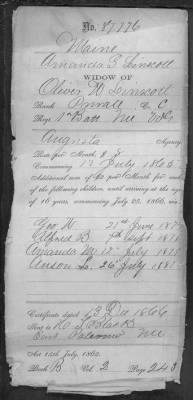 No. 87776
Maine
Amanda B. Linscott
WIDOW OF
Oliver W. Linscott
Rank Private Co. C
Regt. 1" Batt. Me Vols
Augusta Agency
Rate per Month, 8
Commencing 12 July 1865
Additional sum of $2 per Month for each
of the following children, until arriving at the age
of 16 years commencing July 25, 1866, viz:
Geo. W. 21" June
Alfred B. 7" Sept
Amanda 12" July
Anson L. 26 July
Certificate dated 3 Dec 1866
Sent to
East Me
Act 14th July, 1862.
Book B Vol. 2 Page 243